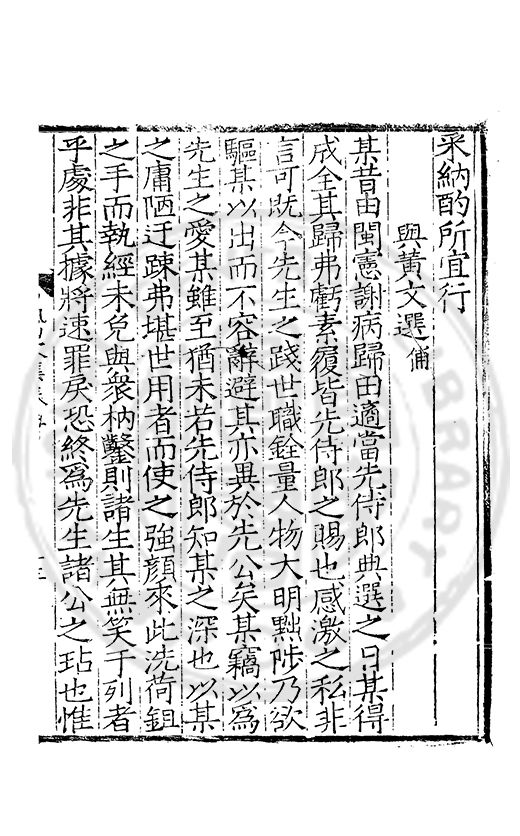 采納酌所宜行
與黃文選俌
某昔由閩憲謝病歸田適當先侍郎典選之日某得
成全其歸弗虧素履皆先侍郎之賜也感激之私非
言可既今先生之踐世職銓量人物大明黜陟乃欲
驅某以出而不容辭避其亦異於先公矣某竊以為
先生之愛某雖至猶未若先侍郎知某之深也以某
之庸陋迂疎弗堪世用者而使之強顏來此洗荷鉏
之手而執經未免與衆枘鑿則諸生其無笑于列者
乎處非其據將速罪戾恐終爲先生諸公之玷也惟